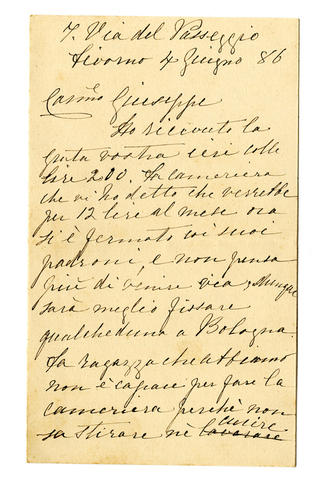 7. Via del Passeggio
Livorno 4 Giugno 86
Carismo Giuseppe
Ho ricevuto la
grata vostra ieri colle
lire 200. La cameriera
che vi ho detto che verrebbe
per 12 lire al mese ora
si è fermata coi suoi
padroni, e non pensa
più di venire via, dunque
sarà meglio fissare
qualcheduna a Bologna.
La ragazza che abbiamo
non è capace per fare la
cameriera perchè non
sa stirare nè cucire